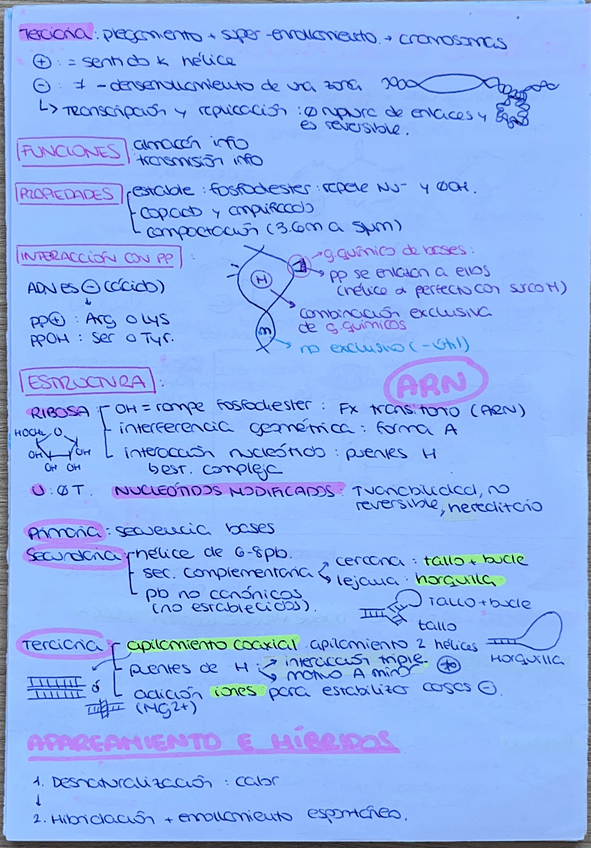 Terciaria: plegamiento + super-enrollamiento → cromosomas
⊕ : = sentido k hélice
⊖ : ≠ - desenrollamiento de una zona
↳ Transcripción y replicación : Ø rupura de enlaces y
es reversible.
FUNCIONES almacén info
transmisión info
PROPIEDADES estable : fosfodiester : repele Nu⁻ y ØOH.
copiado y amplificado
compactación (3.6m a 5μm)
INTERACCIÓN CON PP :
ADN es ⊖ (ácido)
↓
pp⊕ : Arg o Lys
ppOH : Ser o Tyr.
H
m
→ g químico de bases :
→ pp se enlazan a ellos
(hélice α perfecto con surco H)
combinación exclusiva
de g químicos
→ no exclusivo (- útil)
ESTRUCTURA :
ARN
RIBOSA OH = rompe fosfodiester : Fx transitorio (ARN)
interferencia geométrica : forma A
interacción nucleótido : puentes H
best. compleja
HOCH₂ O OH OH OH OH
U : Ø T. NUCLEÓTIDOS MODIFICADOS : ↑variabilidad, no
reversible, hereditario
Primaria : secuencia bases
Secundaria hélice de 6-8pb.
sec. complementaria cercana : tallo + bucle
lejana : horquilla
pb no canónicos
(no establecidos).
Tallo + bucle
tallo
horquilla
Terciaria apilamiento coaxial : apilamiento 2 hélices
puentes de H : interacción triple.
motivo A minor ⊕
adición iones para estabilizar cosas ⊖.
(Mg2+)
ó
APAREAMIENTO E HÍBRIDOS
1. Desnaturalización : calor
↓
2. Hibridación + enrollamiento espontáneo.